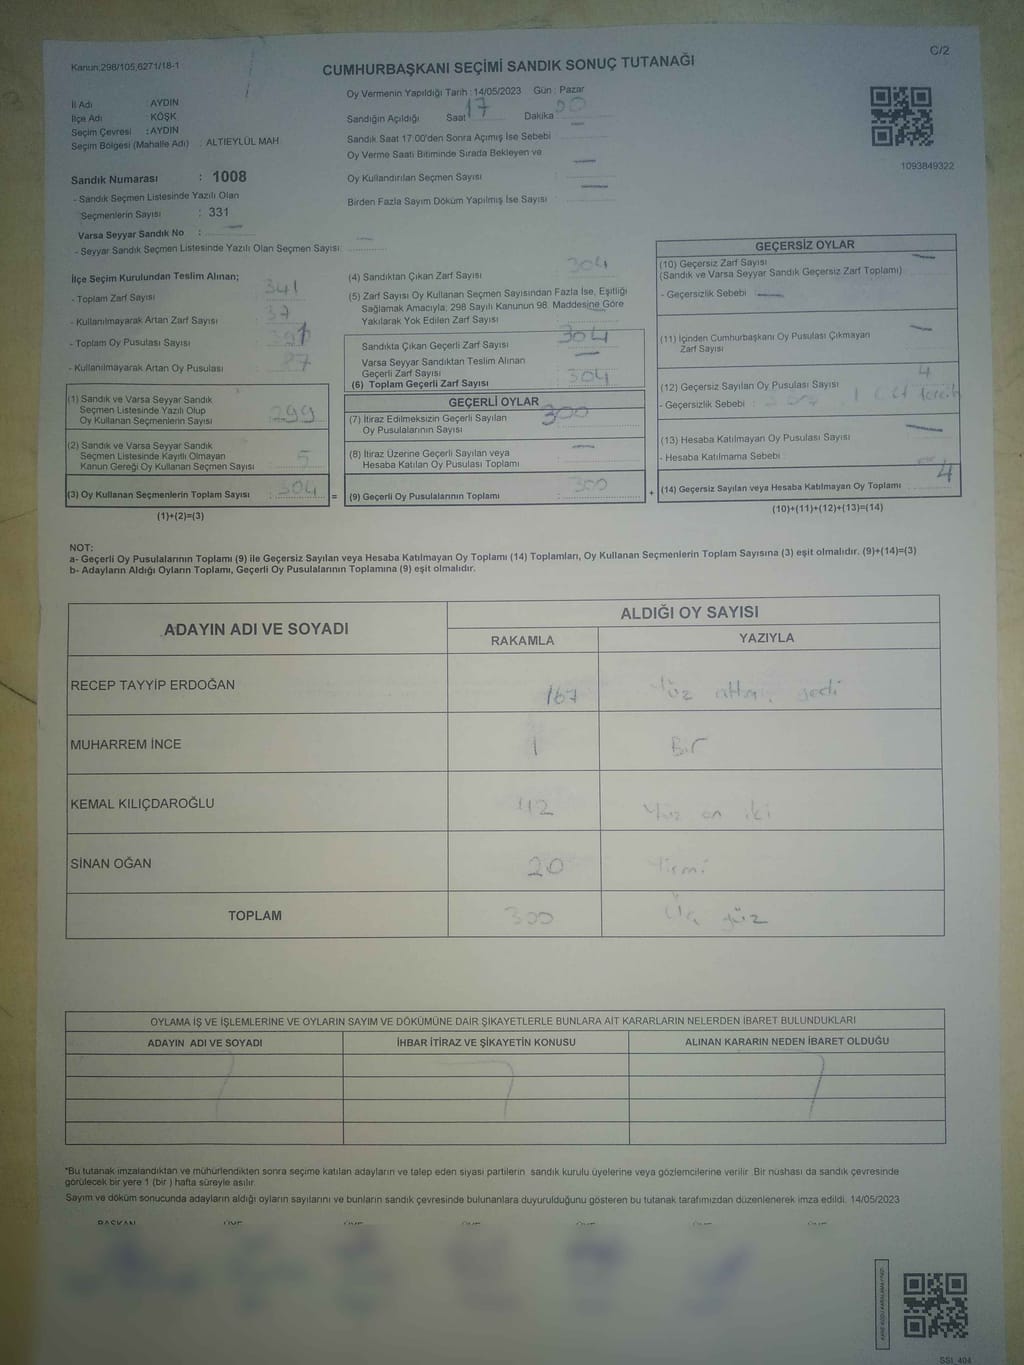 Kanun;298/105,6271/18-1
C/2
CUMHURBAŞKANI SEÇİMİ SANDIK SONUÇ TUTANAĞI
İl Adı : AYDIN
İlçe Adı : KÖŞK
Seçim Çevresi : AYDIN
Seçim Bölgesi (Mahalle Adı) : ALTIEYLÜL MAH.
Sandık Numarası : 1008
- Sandık Seçmen Listesinde Yazılı Olan
Seçmenlerin Sayısı : 331
Varsa Seyyar Sandık No :
- Seyyar Sandık Seçmen Listesinde Yazılı Olan Seçmen Sayısı:
Oy Vermenin Yapıldığı Tarih : 14/05/2023 Gün : Pazar
Sandığın Açıldığı Saat 17 Dakika 00
Sandık Saat 17:00'den Sonra Açımış İse Sebebi
Oy Verme Saati Bitiminde Sırada Bekleyen ve
Oy Kullandırılan Seçmen Sayısı
Birden Fazla Sayım Döküm Yapılmış İse Sayısı
1093849322
İlçe Seçim Kurulundan Teslim Alınan;
- Toplam Zarf Sayısı 341
- Kullanılmayarak Artan Zarf Sayısı 37
- Toplam Oy Pusulası Sayısı
- Kullanılmayarak Artan Oy Pusulası
(1) Sandık ve Varsa Seyyar Sandık
Seçmen Listesinde Yazılı Olup
Oy Kullanan Seçmenlerin Sayısı 299
(2) Sandık ve Varsa Seyyar Sandık
Seçmen Listesinde Kayıtlı Olmayan
Kanun Gereği Oy Kullanan Seçmen Sayısı 5
(3) Oy Kullanan Seçmenlerin Toplam Sayısı : 304
(1)+(2)=(3)
(4) Sandıktan Çıkan Zarf Sayısı 304
(5) Zarf Sayısı Oy Kullanan Seçmen Sayısından Fazla İse, Eşitliği
Sağlamak Amacıyla, 298 Sayılı Kanunun 98. Maddesine Göre
Yakılarak Yok Edilen Zarf Sayısı :
Sandıkta Çıkan Geçerli Zarf Sayısı 304
Varsa Seyyar Sandıktan Teslim Alınan
Geçerli Zarf Sayısı
(6) Toplam Geçerli Zarf Sayısı 304
GEÇERLİ OYLAR
(7) İtiraz Edilmeksizin Geçerli Sayılan 300
Oy Pusulalarının Sayısı
(8) İtiraz Üzerine Geçerli Sayılan veya
Hesaba Katılan Oy Pusulası Toplamı
= (9) Geçerli Oy Pusulalarının Toplamı : 300
GEÇERSİZ OYLAR
(10) Geçersiz Zarf Sayısı
(Sandık ve Varsa Seyyar Sandık Geçersiz Zarf Toplamı)
- Geçersizlik Sebebi :
(11) İçinden Cumhurbaşkanı Oy Pusulası Çıkmayan
Zarf Sayısı
(12) Geçersiz Sayılan Oy Pusulası Sayısı 4
- Geçersizlik Sebebi :
(13) Hesaba Katılmayan Oy Pusulası Sayısı
- Hesaba Katılmama Sebebi
+ (14) Geçersiz Sayılan veya Hesaba Katılmayan Oy Toplamı 4
(10)+(11)+(12)+(13)=(14)
NOT:
a- Geçerli Oy Pusulalarının Toplamı (9) ile Geçersiz Sayılan veya Hesaba Katılmayan Oy Toplamı (14) Toplamları, Oy Kullanan Seçmenlerin Toplam Sayısına (3) eşit olmalıdır. (9)+(14)=(3)
b- Adayların Aldığı Oyların Toplamı, Geçerli Oy Pusulalarının Toplamına (9) eşit olmalıdır.
ADAYIN ADI VE SOYADI
ALDIĞI OY SAYISI
RAKAMLA YAZIYLA
RECEP TAYYİP ERDOĞAN 167 Yüz altmış yedi
MUHARREM İNCE 1 Bir
KEMAL KILIÇDAROĞLU 112 Yüz on iki
SİNAN OĞAN 20 Yirmi
TOPLAM 300 Üç yüz
OYLAMA İŞ VE İŞLEMLERİNE VE OYLARIN SAYIM VE DÖKÜMÜNE DAİR ŞİKAYETLERLE BUNLARA AİT KARARLARIN NELERDEN İBARET BULUNDUKLARI
ADAYIN ADI VE SOYADI İHBAR İTİRAZ VE ŞİKAYETİN KONUSU ALINAN KARARIN NEDEN İBARET OLDUĞU
*Bu tutanak imzalandıktan ve mühürlendikten sonra seçime katılan adayların ve talep eden siyasi partilerin sandık kurulu üyelerine veya gözlemcilerine verilir. Bir nüshası da sandık çevresinde
görülecek bir yere 1 (bir ) hafta süreyle asılır.
Sayım ve döküm sonucunda adayların aldığı oyların sayılarını ve bunların sandık çevresinde bulunanlara duyurulduğunu gösteren bu tutanak tarafımızdan düzenlenerek imza edildi. 14/05/2023
BAŞKAN ÜYE ÜYE ÜYE ÜYE ÜYE ÜYE
SSI_404